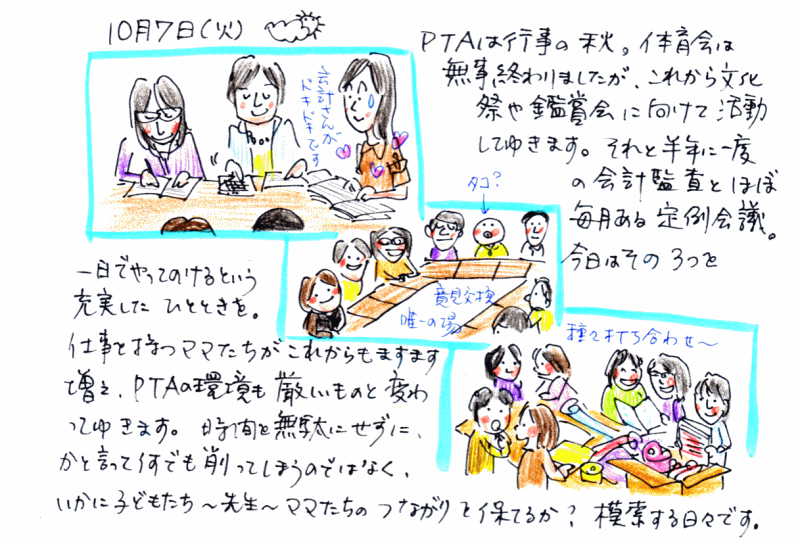 10月7日(火)
PTAは行事の秋。体育会は
無事終わりましたが、これから文化
祭や鑑賞会に向けて活動
してゆきます。それと半年に一度
の会計監査とほぼ
毎月ある定例会議。
今日はその3つを
一日でやってのけるという
充実したひとときを。
仕事を持つママたちがこれからもますます
増え、PTAの環境も厳しいものと変わ
ってゆきます。時間を無駄にせずに、
かと言って何でも削ってしまうのではなく、
いかに子どもたち〜先生〜ママたちのつながりを保てるか?模索する日々です。
会計さんが
ドキドキです
タコ?
意見交換
唯一の場
種々打ち合わせ〜